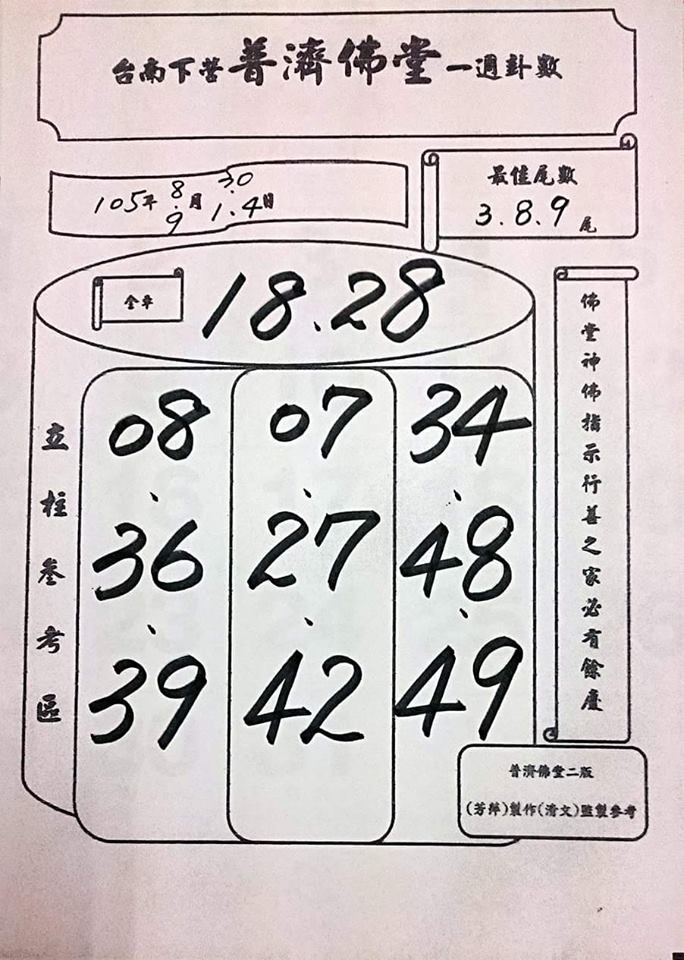 台南下營普濟佛堂一週卦數
105年8.9月30.1.4日
最佳尾數
3.8.9尾
全車
18.28
立柱參考區
08、36、39
07、27、42
34、48、49
佛堂神佛指示行善之家必有餘慶
普濟佛堂二版
(芳萍)製作(清文)監製參考